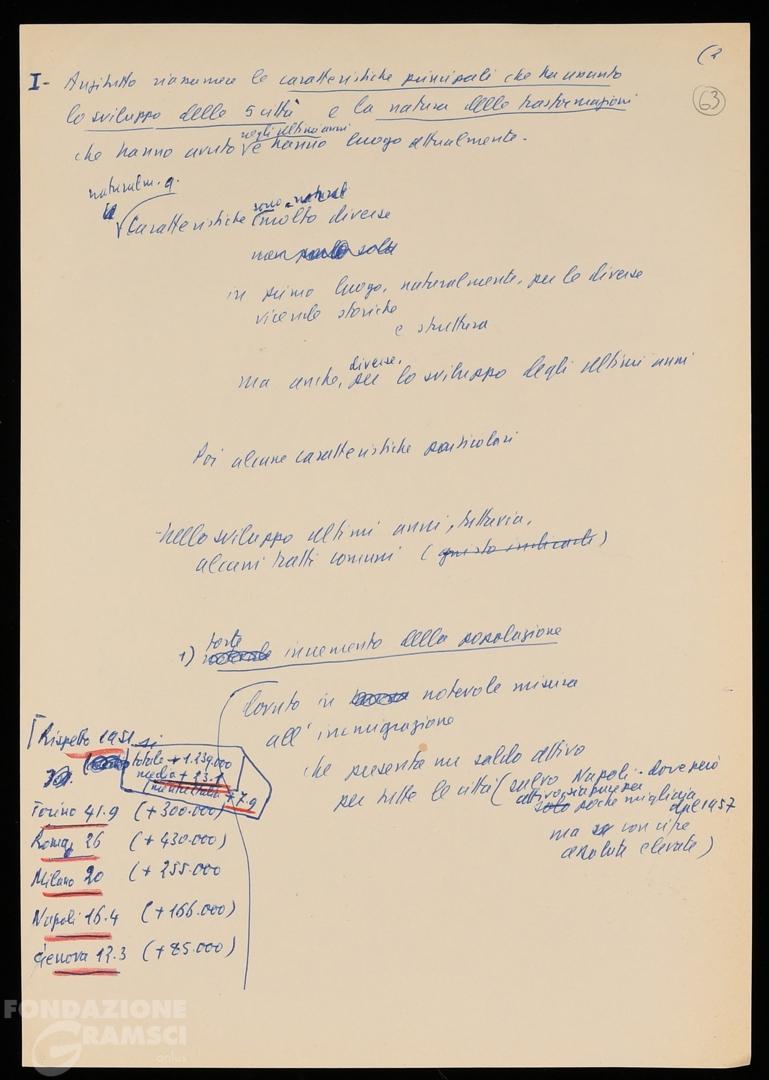 (2
63
I- Anzitutto riassumere le caratteristiche principali che ha assunto
lo sviluppo delle 5 città e la natura delle trasformazioni
negli ultimi anni
che hanno avuto e hanno luogo attualmente.
naturalm.
sono
Caratteristiche molto diverse
non solo
in primo luogo, naturalmente, per le diverse
vicende storiche
e struttura
diverse,
ma anche, per lo sviluppo degli ultimi anni
Poi alcune caratteristiche particolari
- nello sviluppo ultimi anni, tuttavia,
alcuni tratti comuni ( )
forte
1) incremento della popolazione
dovuto in notevole misura
all'immigrazione
che presenta un saldo attivo
per tutte le città (salvo Napoli - dove però
attivo sia pure per
solo poche migliaia dal 1957
ma con cifre
assolute elevate)
Rispetto 1951 si
totale + 1.239.000
media + 23.1
+ 7.9
Torino 41.9 (+300.000)
Roma 26 (+430.000)
Milano 20 (+255.000
Napoli 16.4 (+166.000)
Genova 12.3 (+85.000)
FONDAZIONE
GRAMSCI
onlus